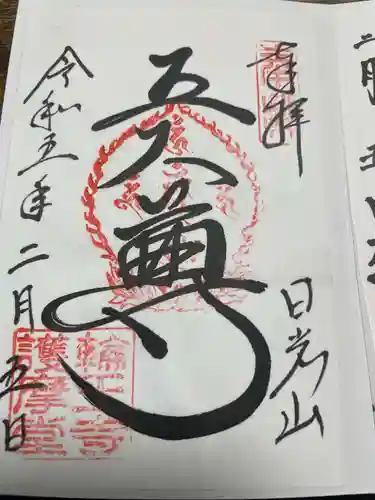 奉拝
日光山
五大尊
令和五年二月五日
輪王寺
護摩堂